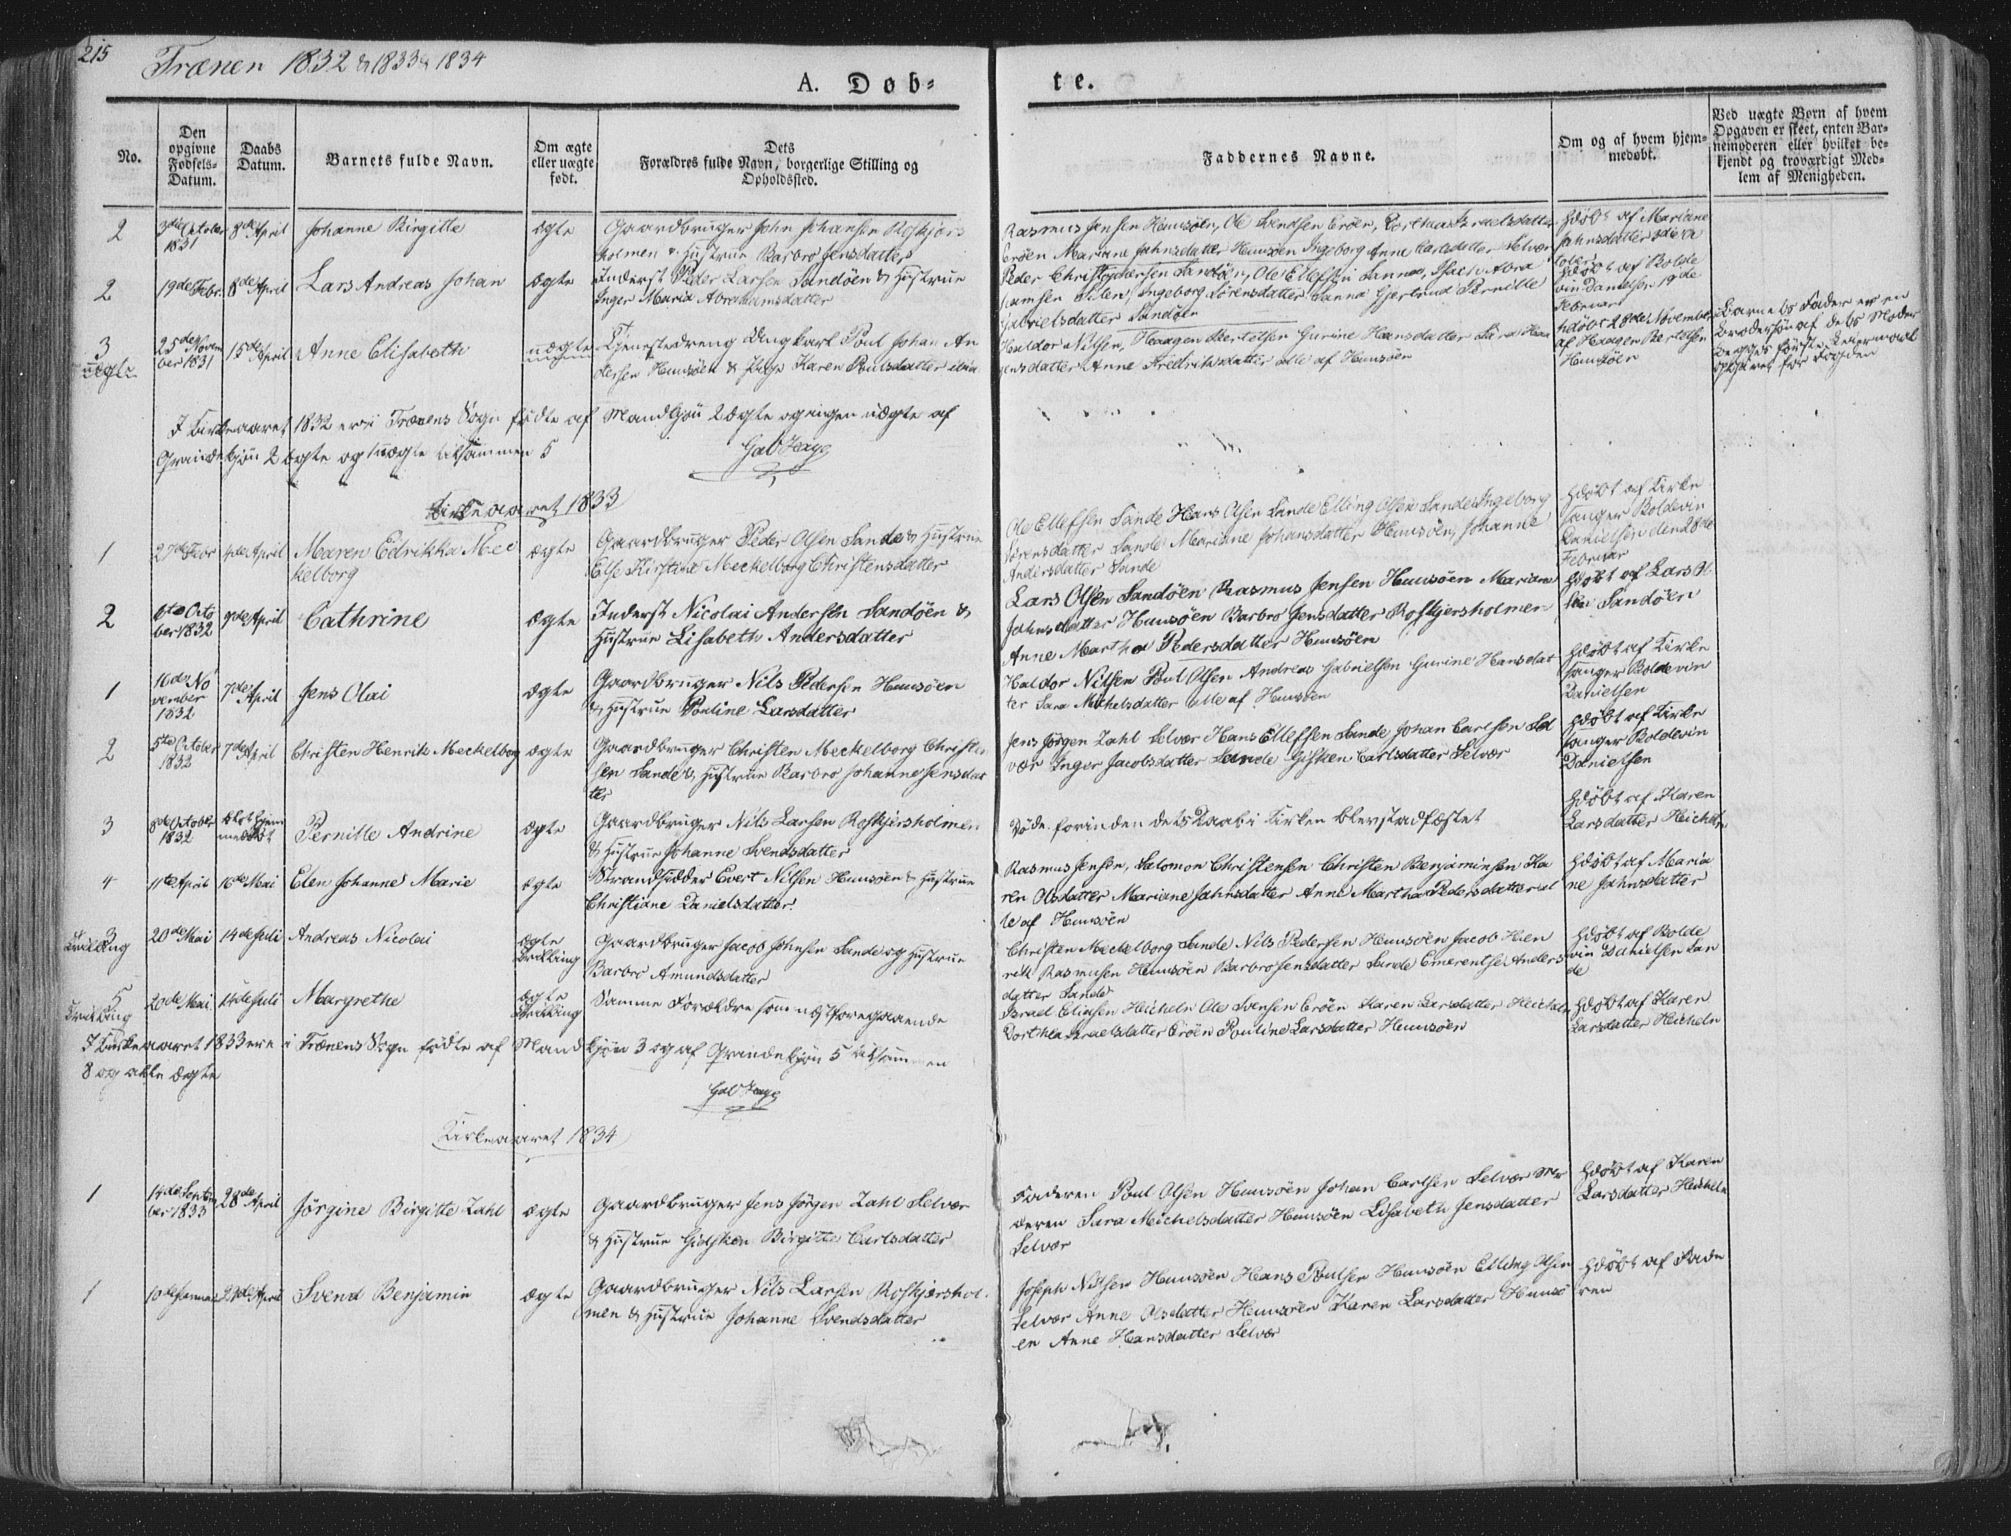 215
Trænen 1832 & 1833 & 1834
A. Døb-
te.
No.
Den opgivne Fødsels-Datum.
Daabs Datum.
Barnets fulde Navn.
Om ægte eller uægte født.
Dets Forældres fulde Navn, borgerlige Stilling og Opholdssted.
Faddernes Navne.
Om og af hvem hjem-medøbt.
Ved uægte Børn af hvem Opgaven er skeet, enten Bar-nemoderen eller hvilket be-kjendt og troværdigt Med-lem af Menigheden.
2
3die October 1831
8de April
Johanne Birgitte
ægte
Gaardbruger John Johansen Roskjærs
holmen & Hustrue Barbro Jensdatter
Rasmus Jensen Huusøen, Ole Svendsen Erøen, Dorthea Israelsdatter
Erøen Mariane Jahnsdatter Huusøen Ingeborg Anne Carlsdatter Selvær
Hdøbt af Mariane
Jahnsdatter 3die
2
19de Febr.
8de April
Lars Andreas Johan
ægte
Inderst Peder Larsen Sandøen & Hustrue
Inger Maria Abrahamsdatter
Peder Christophersen Sandøen, Ole Ellefsen Sanna,
Ingeborg Sørensdatter Sanna Gjertrud Pernille
Gabrielsdatter Sandøen
Hdøbt af Bolde
vin Danielsen 19de
Februari
3
uægte
25de Novem
ber 1831
15de April
Anne Elisabeth
uægte
Tjenestedreng Ungkarl Poul Johan An
dersen Huusøen & Pige Karen Poulsdatter
Haldor Nilsen, Haagen Bertelsen Gurine Hansdatter
Anne Fredriksdatter alle af Huusøen
Hdøbt 28de November
af Haagen Bertelsen
Huusøen
Barnets Fader er en
Brodersøn af dets Moder
begges første Leiermaal
for Fogden
I Kirkeaaret 1832 ere i Trænens Sogn fødte af Mandkjøn 2 ægte og ingen uægte af
Qvindekjøn 2 ægte og 1 uægte tilsammen 5
Kirkeaaret 1833
1
27de Febr
4de April
Maren Edrikka Mec
kelborg
ægte
Gaardbruger Peder Olsen Sande & Hustrue
Else Kirstine Meckelborg Christensdatter
Ole Ellefsen Sande Hans Olsen Sande Elling Olsen Sande Ingeborg
Sørensdatter Sande Mariane Johansdatter Huusøen, Johanne
Andersdatter Sande
Hdøbt af Kirke
sanger Boldevin
Danielsen den 28de
Februar
2
6te Octo
ber 1832
9de April
Cathrine
ægte
Inderst Nicolai Andersen Sandøen &
Hustrue Lisabeth Andersdatter
Lars Olsen Sandøen Rasmus Jensen Huusøen Mariane
Jahnsdatter Huusøen Barbro Jensdatter Roskjersholmen
Anne Martha Pedersdatter Huusøen
Hdøbt af Lars Ol
sen Sandøen
1
16de No
vember
1832
7de April
Jens Olai
ægte
Gaardbruger Nils Pedersen Huusøen
& Hustrue Pouline Larsdatter
Haldor Nilsen Poul Olsen Andreas Gabrielsen Gurine Hansdat
ter Sara Michelsdatter alle af Huusøen
Hdøbt af Kirke
sanger Boldevin
Danielsen
2
5te October
1832
7de April
Christen Henrik Meckelborg
ægte
Gaardbruger Christen Meckelborg Christen
sen Sande & Hustrue Barbro Johanne Jensdat
ter
Jens Jørgen Zahl Selvær Hans Ellefsen Sande Johan Carlsen Sel
vær Inger Jacobsdatter Sande Gisken Carlsdatter Selvær
Hdøbt af Kirke
sanger Boldevin
Danielsen
3
8de October
1832
Blot Hjem
medøbt
Pernille Andrine
ægte
Gaardbruger Nils Larsen Roskjersholmen
& Hustrue Johanne Svendsdatter
Døde forinden dets Daab i Kirken blev stadfæstet
Hdøbt af Karen
Larsdatter Heicheln
4
11te April
16de Mai
Elen Johanne Marie
ægte
Strandsidder Evert Nilsen Huusøen & Hustrue
Christiane Danielsdatter
Rasmus Jensen, Salomon Christensen Christen Benjaminsen Ka
ren Olsdatter Mariane Jahnsdatter Anne Martha Pedersdatter al
le af Huusøen
Hdøbt af Maria
ne Jahnsdatter
3
Tvilling
20de Mai
14de Juli
Andreas Nicolai
ægte
Tvilling
Gaardbruger Jacob Johnsen Sande og Hustrue
Barbro Amundsdatter
Christen Meckelborg Sande Nils Pedersen Huusøen Jacob Hen
rik Rasmusen Huusøen Barbro Jensdatter Sande Emerentse Anders
datter Sande
Hdøbt af Bolde
vin Danielsen San
de
5
Tvilling
20de Mai
14de Juli
Margrethe
ægte
Tvilling
Samme Forældre som næstforegaaende
Israel Eliasen Heicheln Ole Svensen Erøen Karen Larsdatter Heicheln
Dorthea Israelsdatter Erøen Pouline Larsdatter Huusøen
Hdøbt af Karen
Larsdatter Heicheln
I Kirkeaaret 1833 ere i Trænens Sogn fødte af Mandkjøn 3 og af Qvindekjøn 5 tilsammen
8 og alle ægte
Kirkeaaret 1834
1
14de Septem
ber 1833
28de April
Jørgine Birgitte Zahl
ægte
Gaardbruger Jens Jørgen Zahl Selvær
& Hustrue Gidsken Birgitte Carlsdatter
Faderen Poul Olsen Huusøen Johan Carlsen Selvær Mo
deren Sara Michelsdatter Huusøen Lisabeth Jensdatter
Selvær
Hdøbt af Karen
Larsdatter Heicheln
1
10de Januar
29de April
Svend Benjamin
ægte
Gaardbruger Nils Larsen Roskjærshol
men & Hustrue Johanne Svendsdatter
Joseph Nilsen Huusøen Hans Poulsen Huusøen Elling Olsen
Selvær Anne Olsdatter Huusøen Karen Larsdatter Huusø
en Anne Hansdatter Selvær
Hdøbt af Fade
ren